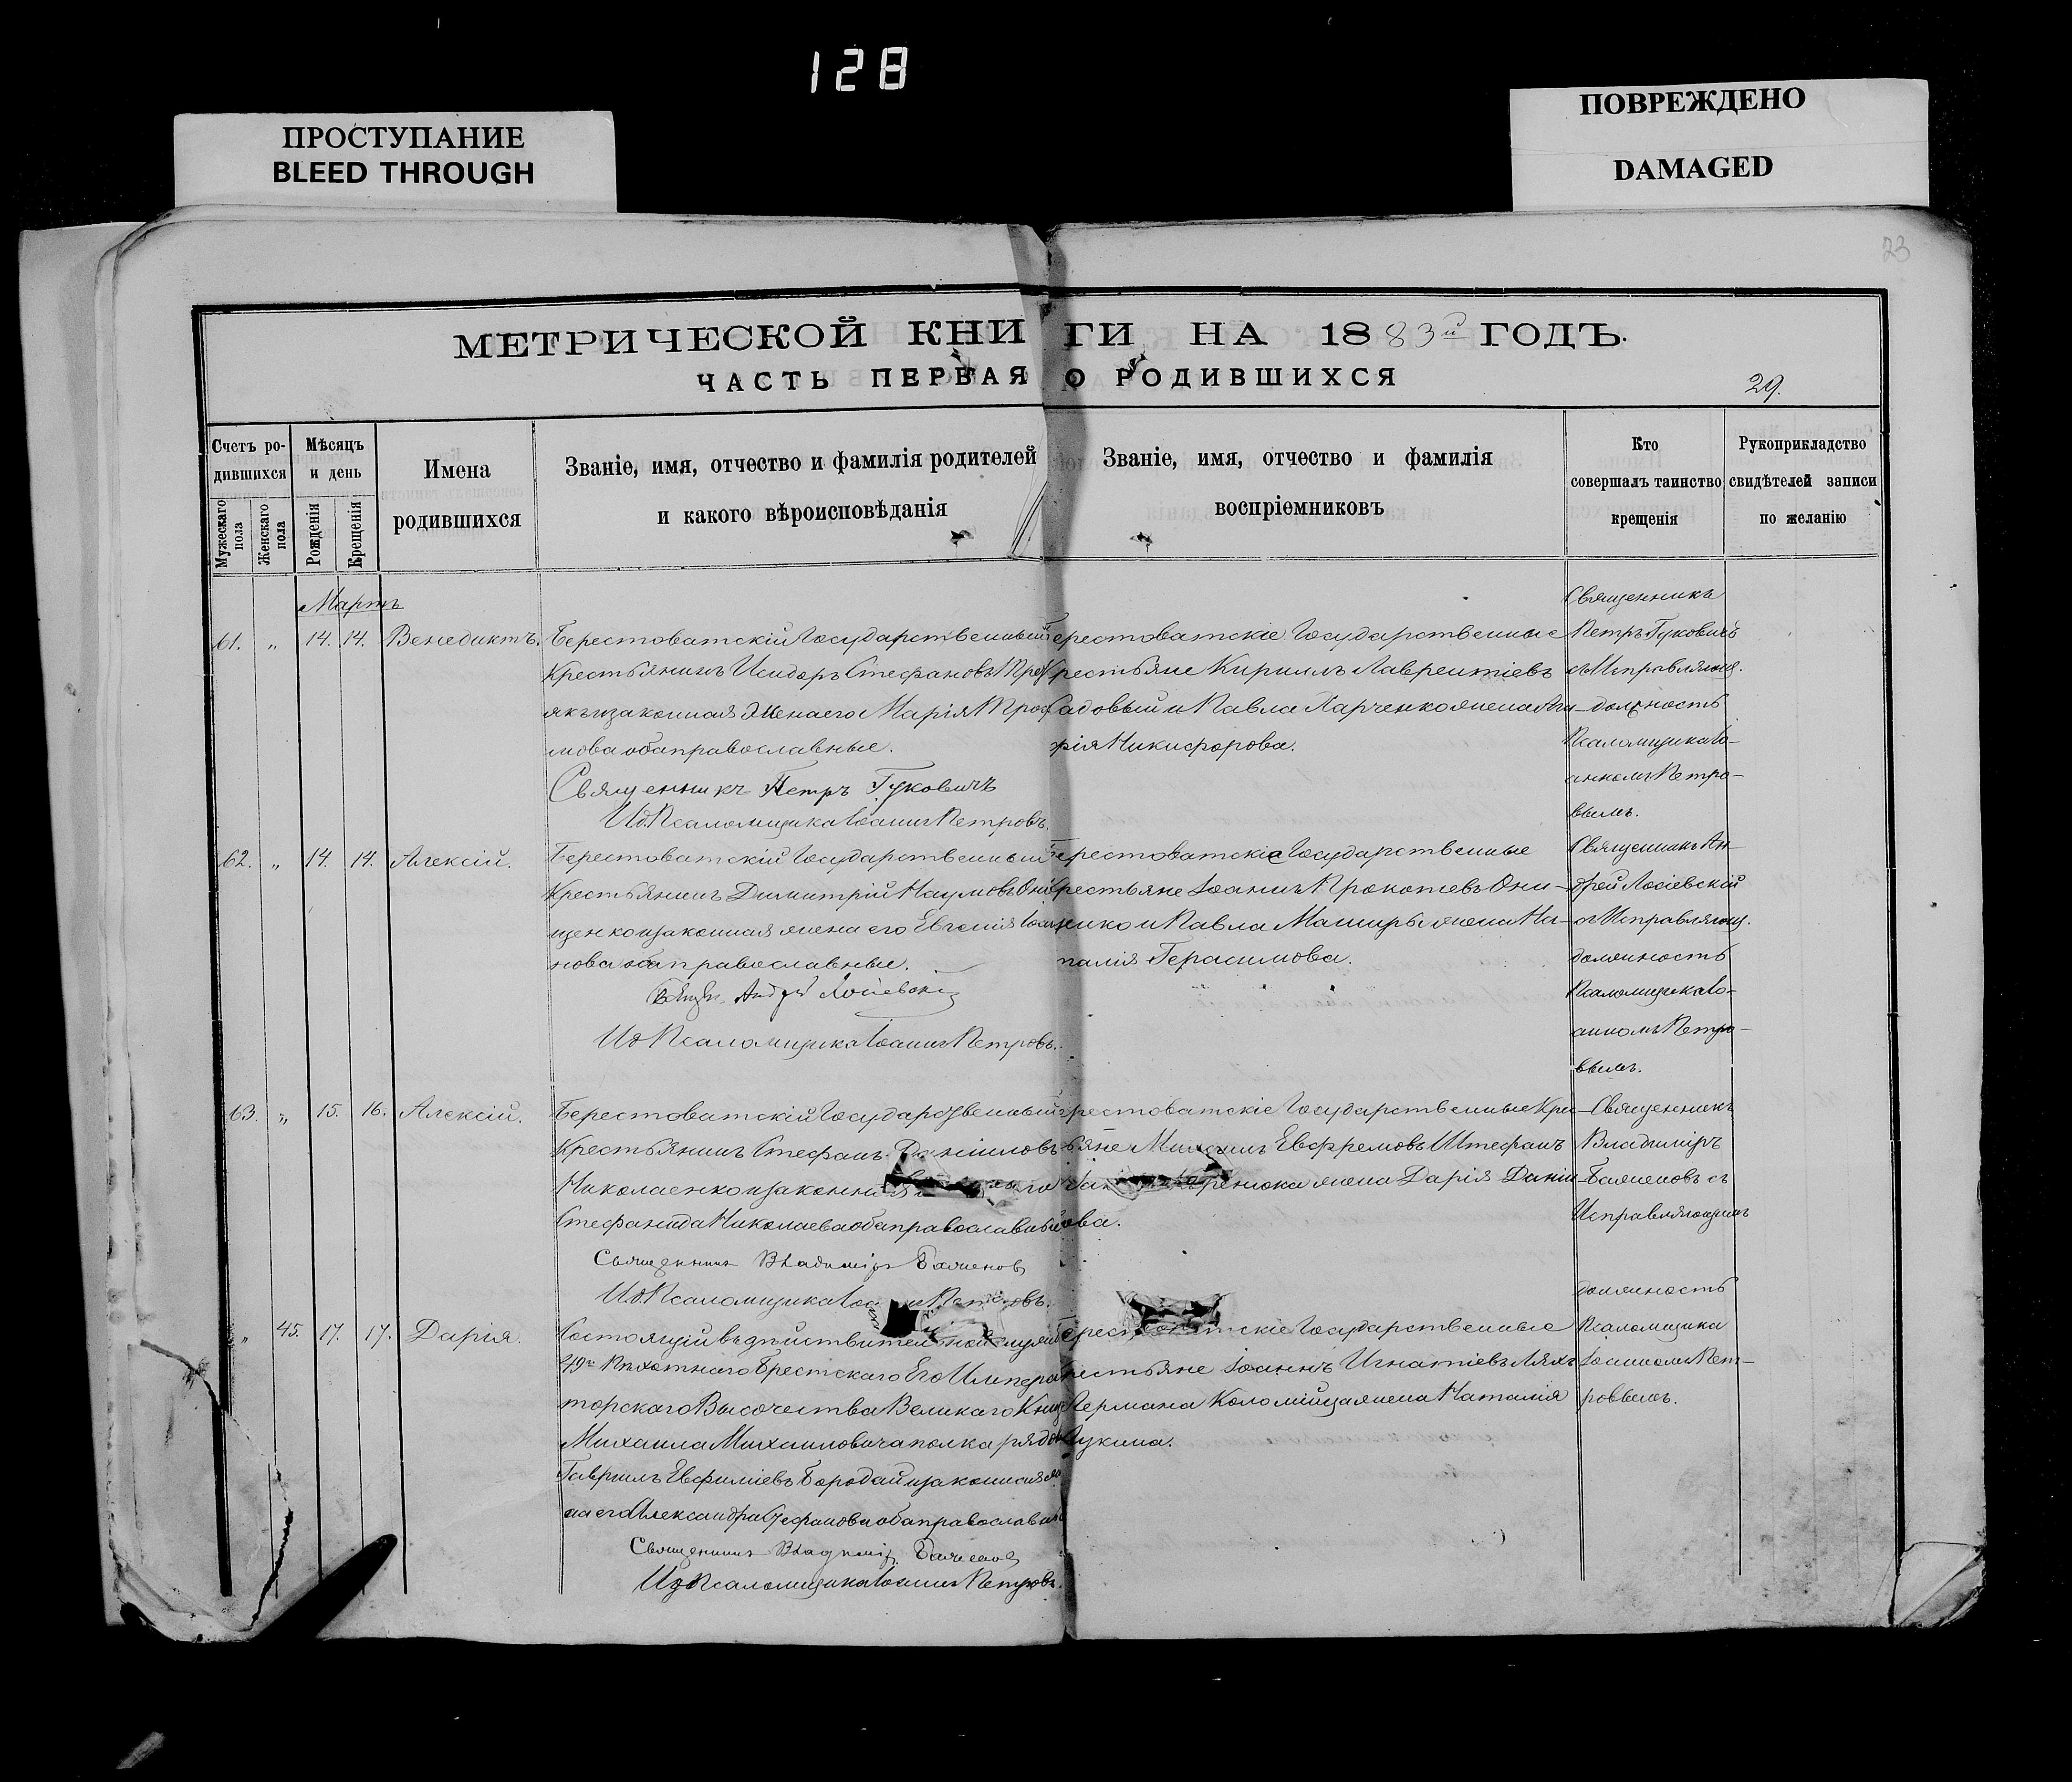 128
ПРОСТУПАНИЕ
BLEED THROUGH
ПОВРЕЖДЕНО
DAMAGED
23
МЕТРИЧЕСКОЙ КНИГИ НА 1883й ГОДЪ.
ЧАСТЬ ПЕРВАЯ О РОДИВШИХСЯ
29.
Счетъ ро-
дившихся
Мужескаго
пола
Женскаго
пола
Мѣсяцъ
и день
Рожденія
Крещенія
Имена
родившихся
Званіе, имя, отчество и фамилія родителей
и какого вѣроисповѣданія
Званіе, имя, отчество и фамилія
воспріемниковъ
Кто
совершалъ таинство
крещенія
Рукоприкладство
свидѣтелей записи
по желанію
Мартъ
61. „ 14. 14. Венедиктъ.
Берестоватскій Государственный
Крестьянинъ Исидоръ Стефановъ
якъ и законная Жена его Марія
мова оба православные.
Священникъ Петръ Гуковичъ
И.д. Псаломщика Іоаннъ Петровъ.
Берестоватскіе Государственные
Крестьяне Кириллъ Лаврентіевъ
Садовый и Павла Харченко жена
рія Никифорова.
Священникъ
Петръ Гуковичъ
съ Исправляющ.
должность
Псаломщика Іо-
анномъ Петро-
вымъ.
62. „ 14. 14. Алексій.
Берестоватскій Государственный
Крестьянинъ Димитрій Наумовъ Они
щенко и законная жена его Евгенія Іоан
нова оба православные.
Свящ. Андрей Лосіевскій
И.д. Псаломщика Іоаннъ Петровъ.
Берестоватскіе Государственные
Крестьяне Іоаннъ Прокопіевъ Они-
щенко и Павла Мащиры жена На-
талія Герасимова.
Священникъ Ан-
дрей Лосіевскій
съ Исправляющ.
должность
Псаломщика Іо-
анномъ Петро-
вымъ.
63. „ 15. 16. Алексій.
Берестоватскій Государственный
Крестьянинъ Стефанъ Даніиловъ
Николаенко и законная
Стефанида Николаева оба православные
Священникъ Владиміръ Баженовъ
И.д. Псаломщика Іоаннъ Петровъ.
Берестоватскіе Государственные Крес-
тьяне Евфремовъ Штефанъ
жена Дарія Даніи-
лова.
Священникъ
Владиміръ
Баженовъ съ
Исправляющимъ
должность
Псаломщика
Іоанномъ Пет-
ровымъ.
„ 45. 17. 17. Дарія.
Состоящій въ дѣйствительной службѣ
49го Пѣхотнаго Брестскаго Его Импера
торскаго Высочества Великаго Князя
Михаила Михаиловича полка рядовой
Гавріилъ Евфиміевъ Бородай и законная же
на его Александра Стефанова оба православные
Священникъ Владиміръ Баженовъ
И.д. Псаломщика Іоаннъ Петровъ.
Берестоватскіе Государственные
Крестьяне Іоаннъ Игнатіевъ Ляхъ
Германа Коломійца жена Наталія
Лукина.